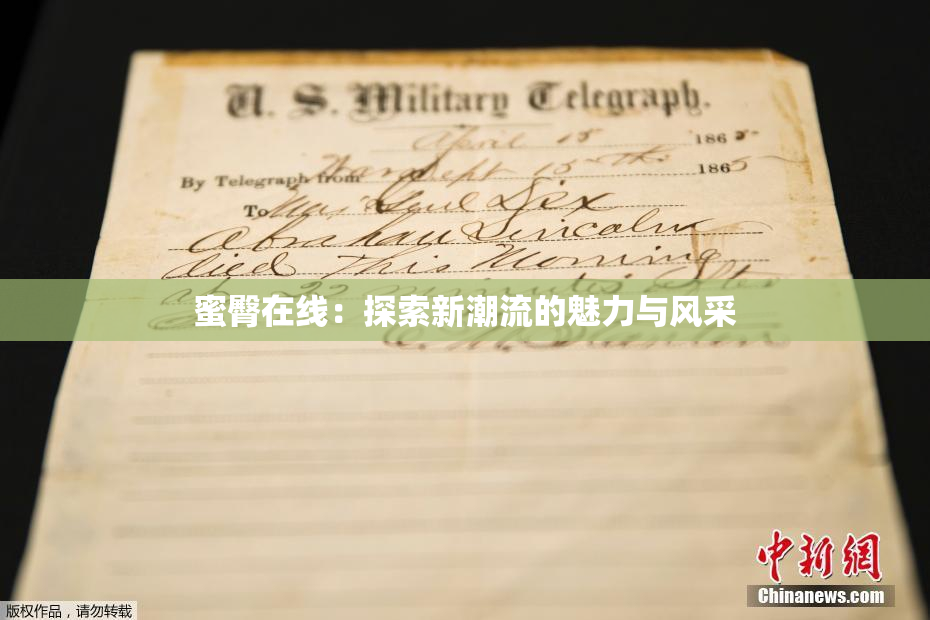 U. S. Military Telegraph.
April 15 1865
By Telegraph from War Dept 15th 1865
To Maj Genl Dix
Abraham Lincoln
died This Morning
at 22 minutes after
蜜臀在线：探索新潮流的魅力与风采
中新网
Chinanews.com
版权作品，请勿转载